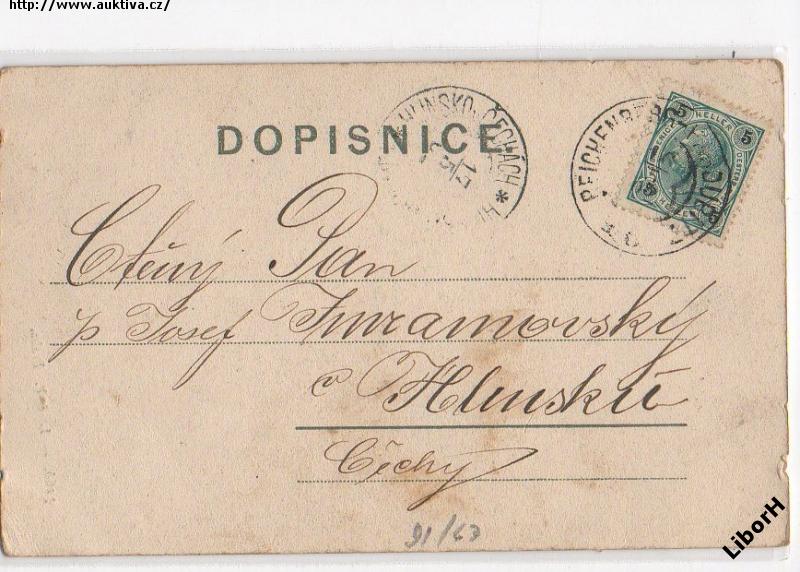 http://www.auktiva.cz/
DOPISNICE
HLINSKO ČECHÁCH *
REICHENBERG
5 HELLER 5
Ctěný Pan
p Josef
v Hlinsku
Čechy
91/63
LiborH